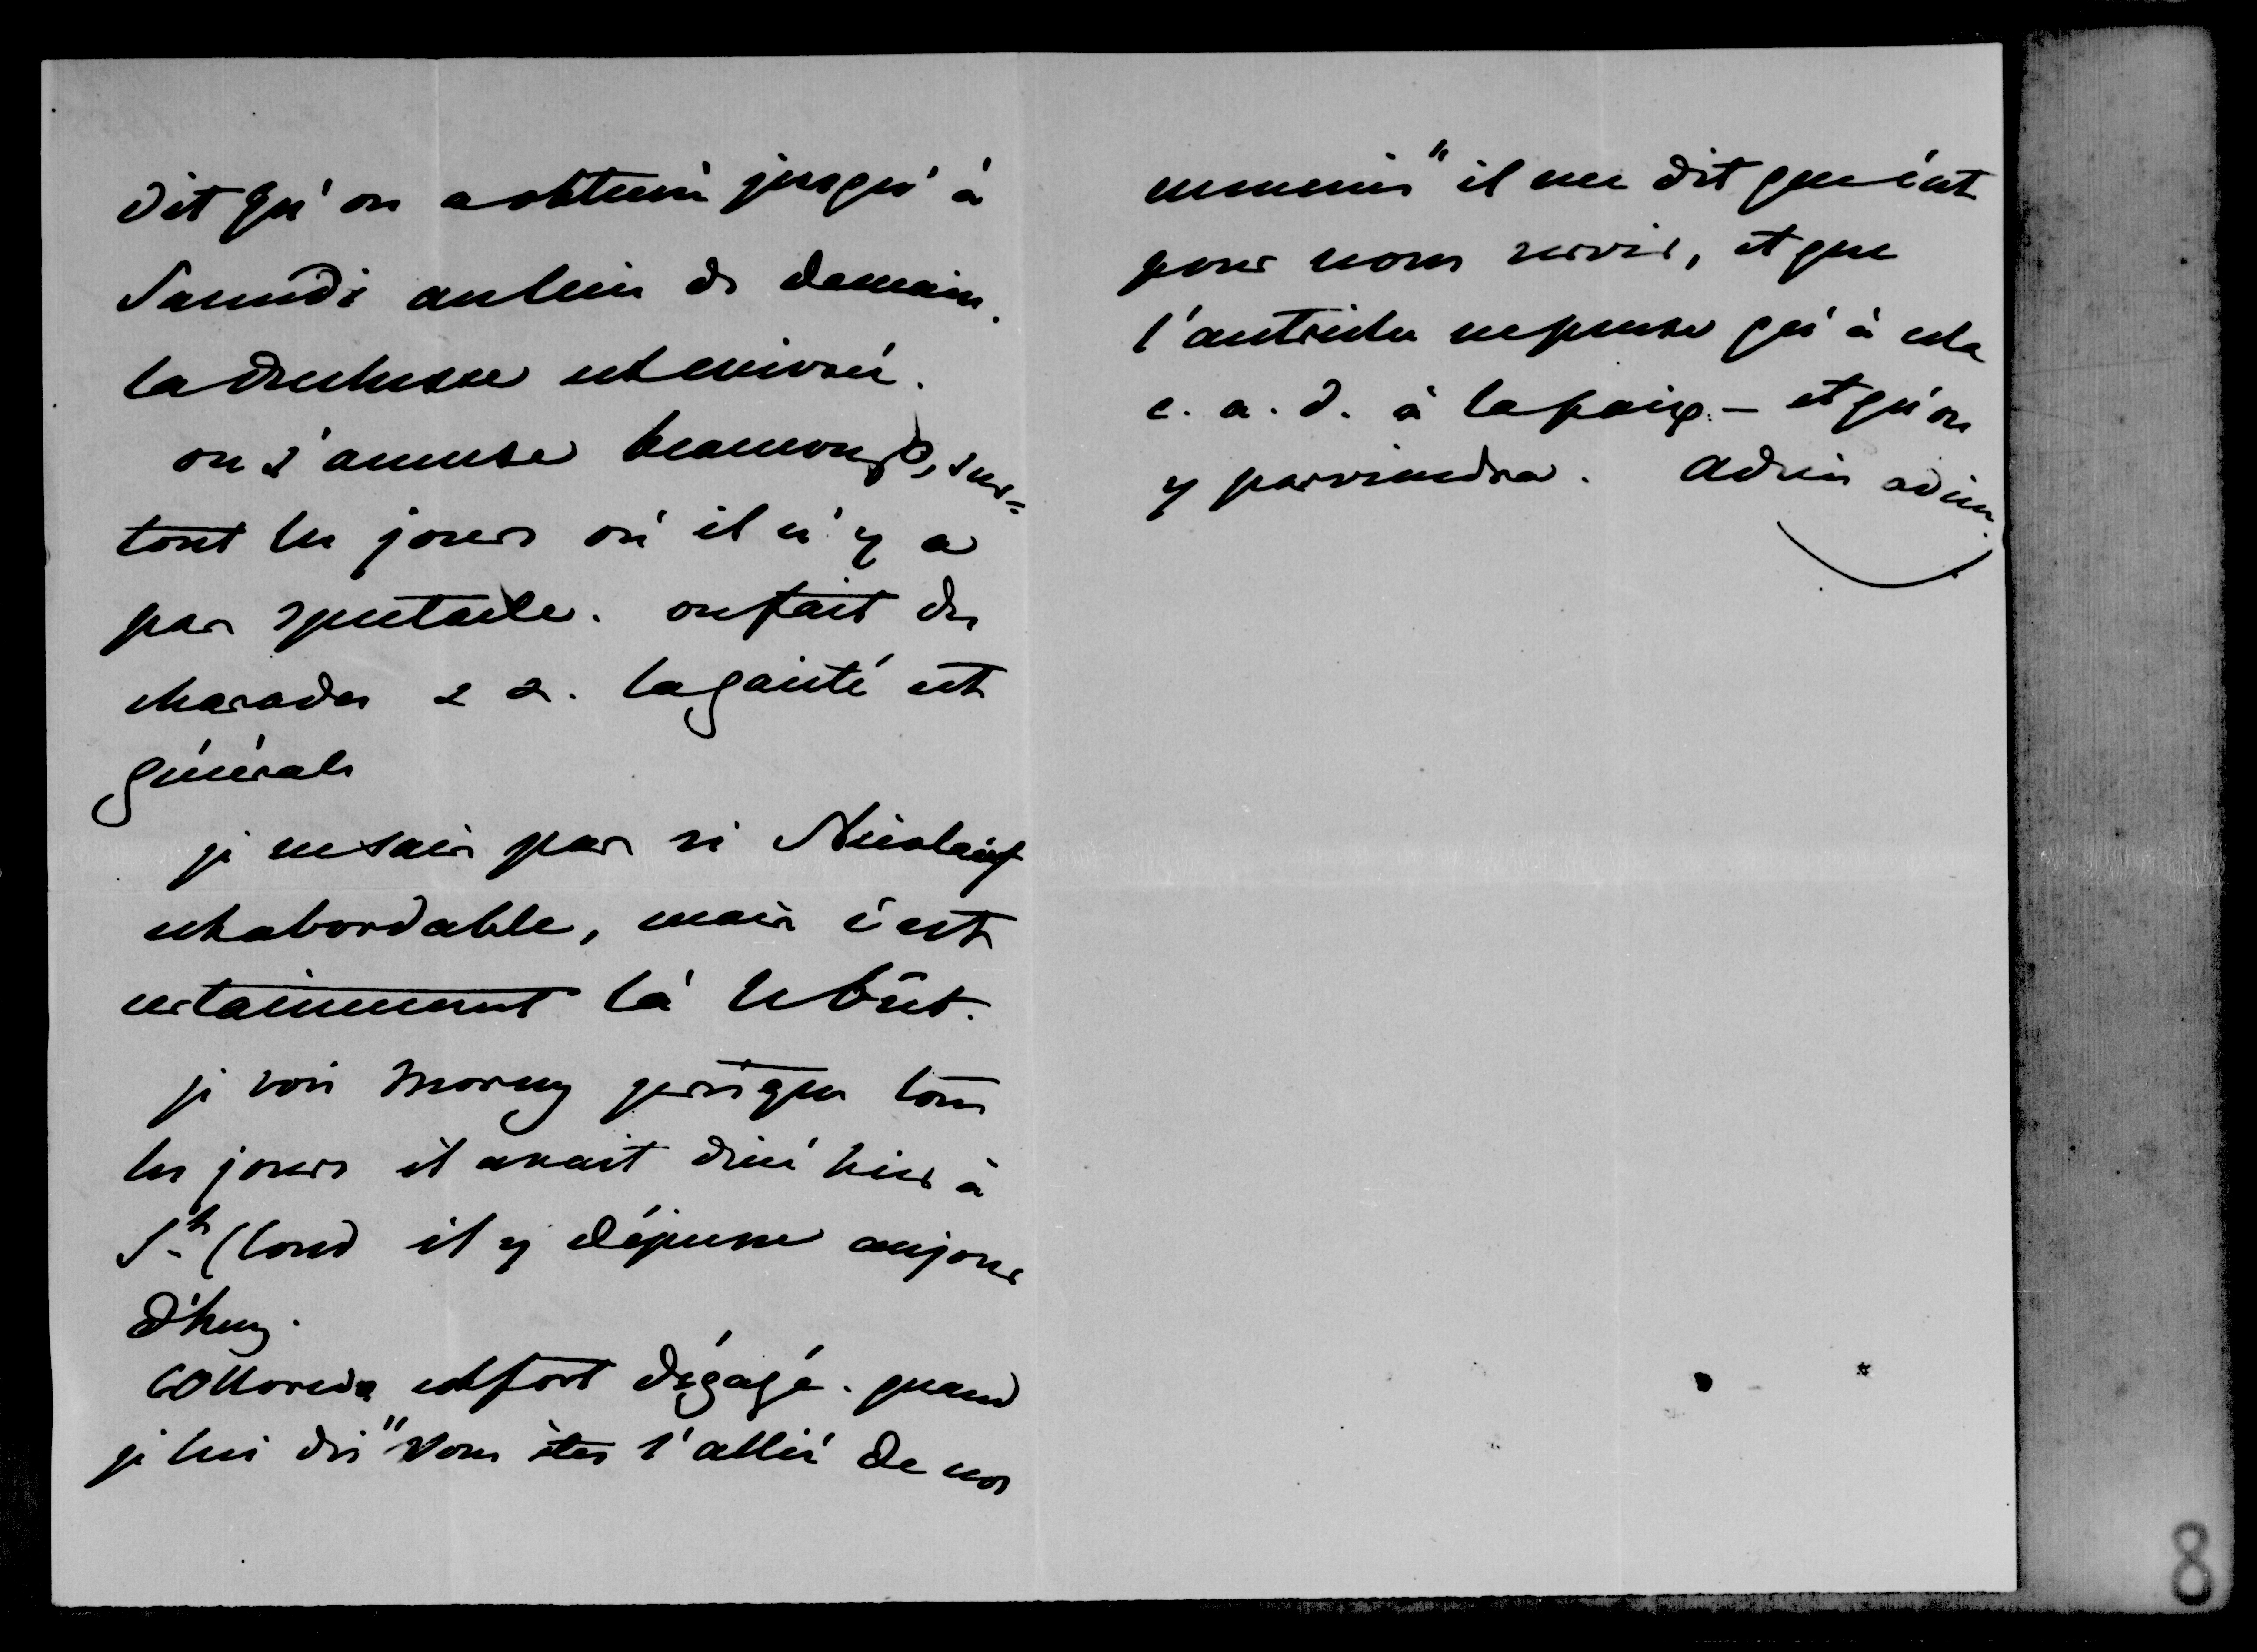 dit qu'on a obtenu jusqu'à
Samedi au lieu de demain.
la duchesse est enivrée.
on s'amuse beaucoup, sur=
tout les jours où il n'y a
pas spectacle. on fait des
charades & &. la gaieté est
générale
je ne sais pas si Nicolaÿ
est abordable, mais c'est
certainement là le bût.
je vois Morny presque tous
les jours il avait diné hier à
St Cloud il y déjeune aujour
d'huy.
Colloredo est fort dégagé. quand
je lui dis "vous êtes l'allié de nos
ennemis" il me dit que c'est
pour nous servir, et que
l'autriche ne pense qu'à cela
c. a. d. à la paix. – et qu'on
y parviendra. Adieu adieu.
8